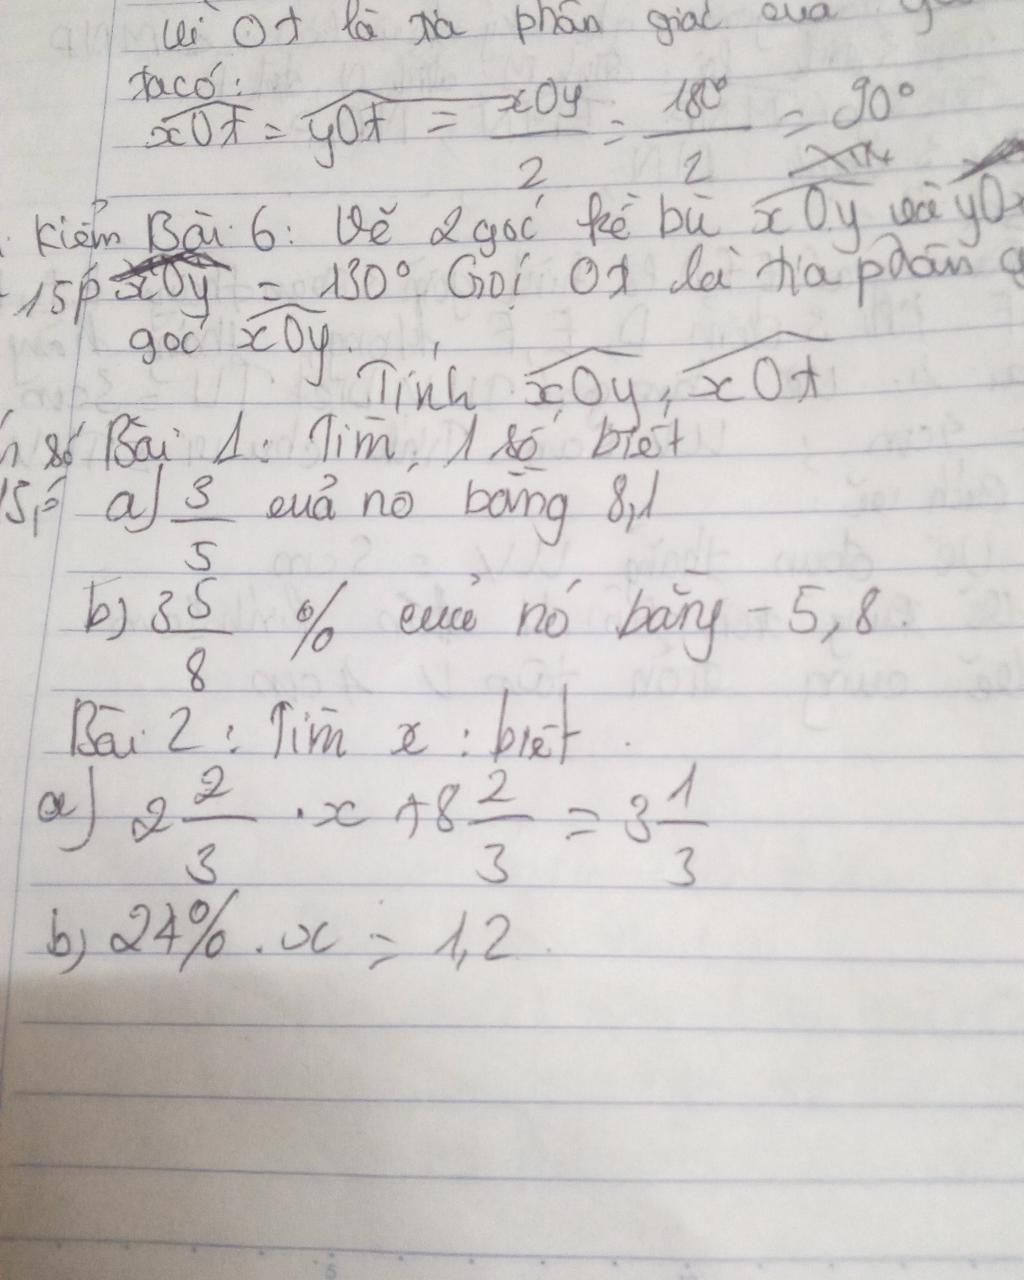 Vì Ot là tia phân giác của
ta có:
xOt = yOt = xOy/2 = 180°/2 = 90°
Kiểm Bài 6: Vẽ 2 góc kề bù xOy và yO
15p xOy = 130° Gọi Ot là tia phân g
góc xOy.
Tính xOy, xOt
số Bài 1: Tìm 1 số biết
15p a) 3/5 của nó bằng 8,1
b) 3 5/8 % của nó bằng -5,8.
Bài 2: Tìm x: biết.
a) 2 2/3 . x + 8 2/3 = 3 1/3
b) 24% . x = 1,2.